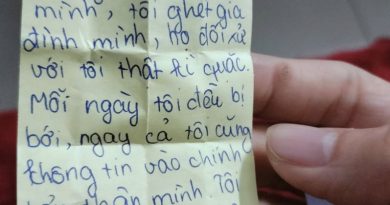 mình, tôi ghét gia
đình mình, họ đối xử
với tôi thật kì quặc.
Mỗi ngày tôi đều bị
bới, ngay cả tôi cũng
không tin vào chính
thân mình. Tôi